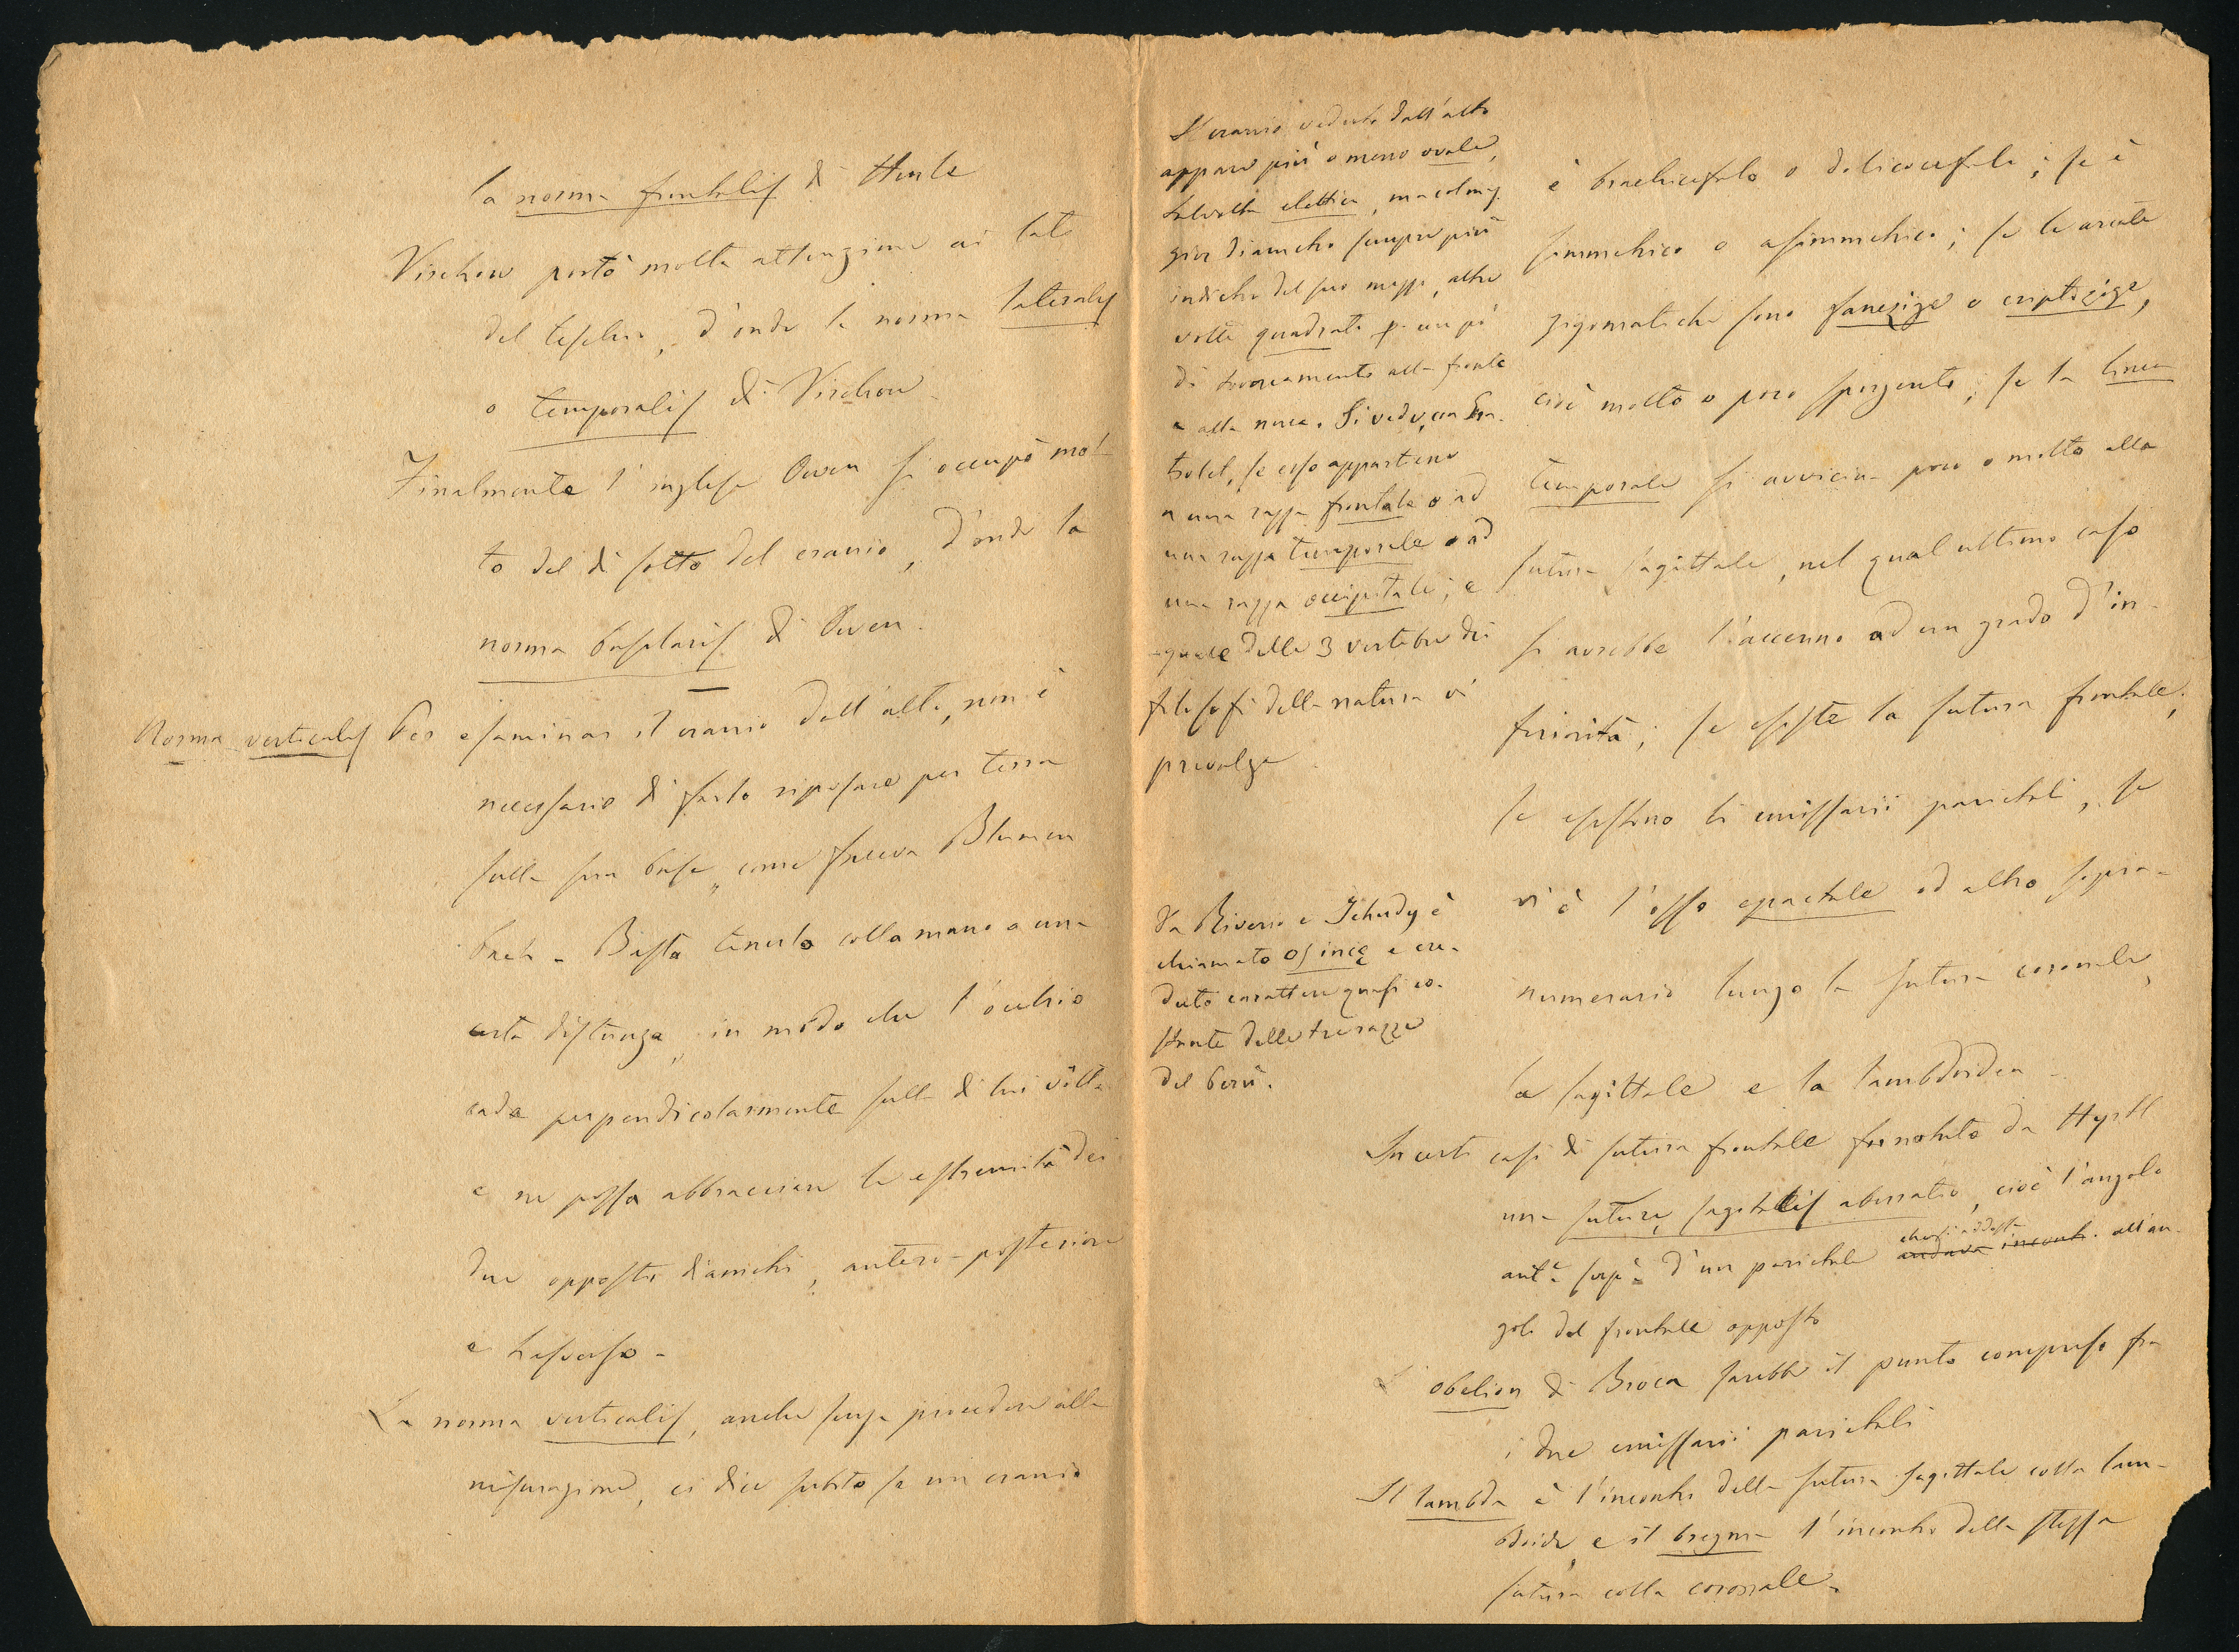 la norma frontalis di Henle
Virchow portò molta attenzione ai lati
del teschio, d'onde la norma lateralis
o temporalis di Virchow
Finalmente l'inglese Owen si occupò mol-
to del di sotto del cranio, d'onde la
norma basilaris di Owen.
Norma verticalis
Per esaminar il cranio dall'alto, non è
necessario di farlo riposare per terra
sulla sua base, come faceva Blumen
bach - Basta tenerlo colla mano a una
certa distanza, in modo che l'occhio
cada perpendicolarmente sulla di lui vôlta
e ne possa abbracciare le estremità dei
due opposti diametri, antero-posteriore
e trasverso -
La norma verticalis, anche senza procedere alla
misurazione, ci dice subito se un cranio
Il cranio veduto dall'alto
appare più o meno ovale,
talvolta elittico, ma col mag.
gior diametro sempre più
indietro del suo mezzo, altre
volte quadrato p. un po'
di troncamento alla fronte
e alla nuca. Si vede, con Gra-
tiolet, se esso appartiene
a una razza frontale o ad
una razza temporale o ad
una razza occipitale; e
quale delle 3 vertebre dei
filosofi della natura vi
prevalga
Da Rivero e Tchudy è
chiamato os incę e cre-
duto carattere quasi co-
stante delle tre razze
del Perù.
è brachicefalo o dolicocefalo; se è
simmetrico o asimmetrico; se le arcate
zigomatiche sono fanezige o criptozige,
cioè molto o poco sporgenti; se la linea
temporale si avvicina poco o molto alla
sutura sagittale, nel qual ultimo caso
si avrebbe l'accenno ad un grado d'in-
feriorità; se esiste la sutura frontale;
se esistono li emissarii parietali, se
vi è l'osso epactale od altro sopra-
numerario lungo la sutura coronale,
la sagittale e la lambdoidea -
In certi casi di sutura frontale fu notata da Hyrtl
una suturę sagittalis aberratio, cioè l'angolo
antᵉ supᵉ d'un parietale andava incont. all'an-
golo del frontale opposto
L'obelion di Broca sarebbe il punto compreso fra
i due emissarii parietali
Il lambda è l'incontro della sutura sagittale colla lam-
bdoide, e il bregma l'incontro della stessa
sutura colla coronale.